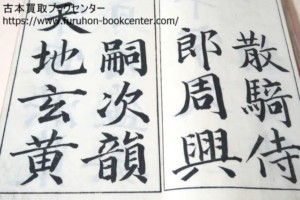 古本買取ブックセンター
https://www.furuhon-bookcenter.com/
散騎侍
郎周興
嗣次韻
天地玄黄